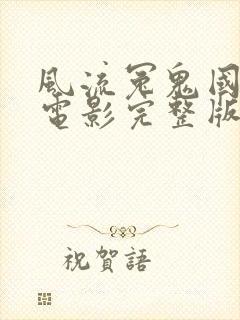 風流冤鬼國
電影完整版
祝賀語